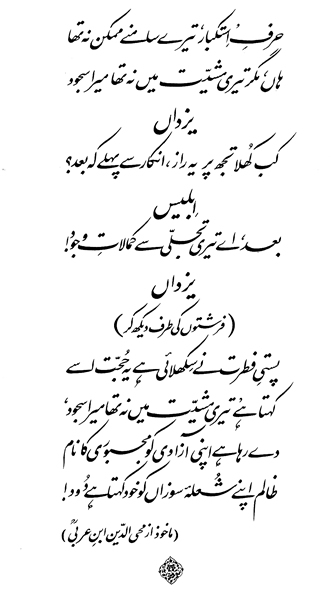 حرفِ اِستکبار، تیرے سامنے ممکن نہ تھا
ہاں، مگر تیری مشیّت میں نہ تھا میرا سجود
یزداں
کب کھُلا تجھ پر یہ راز، انکار سے پہلے کہ بعد؟
اِبلیس
بعد، اے تیری تجلّی سے کمالاتِ وجود!
یزداں
(فرشتوں کی طرف دیکھ کر)
پستیِ فطرت نے سِکھلائی ہے یہ حُجّت اسے
کہتا ہے ’تیری مشیّت میں نہ تھا میرا سجود،
دے رہا ہے اپنی آزادی کو مجبوری کا نام
ظالم اپنے شُعلۂ سوزاں کو خود کہتا ہے دُود!
(ماخوذ از محی الدّین ابنِ عربیؒ)